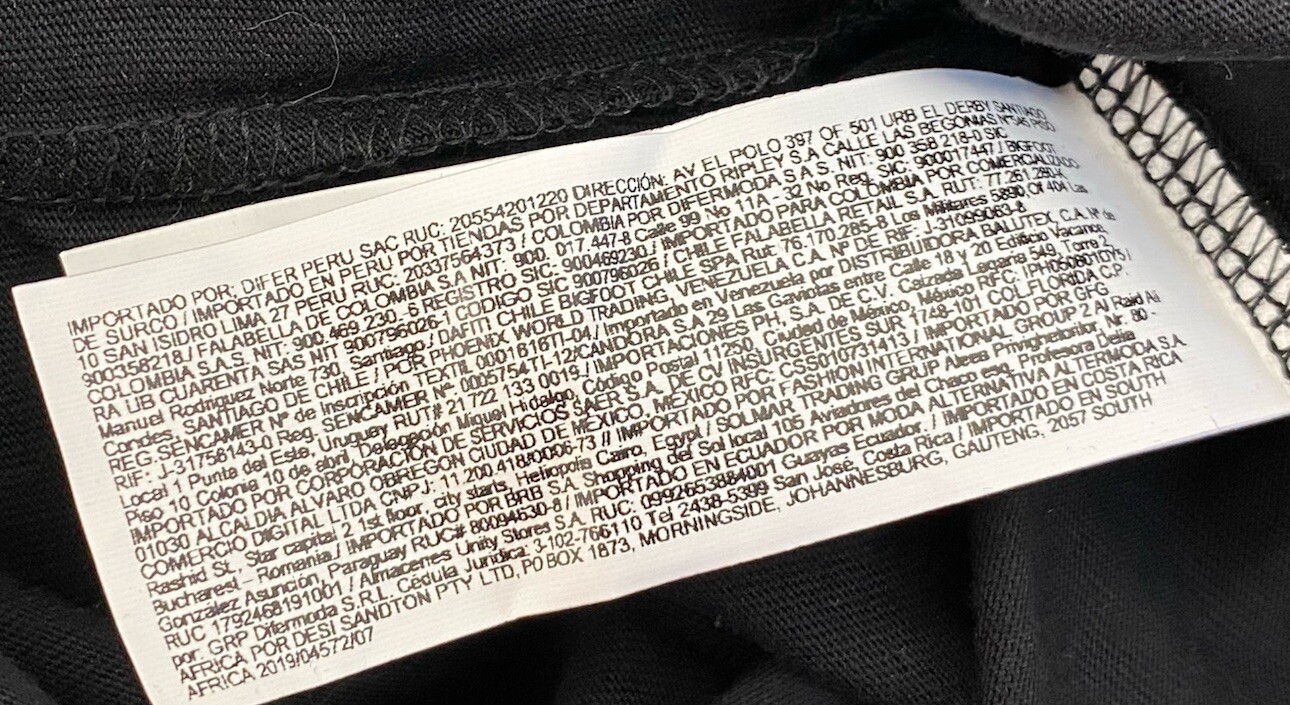 IMPORTADO POR: DIFER PERU SAC RUC: 20554201220 DIRECCIÓN: AV EL POLO 397 OF 501 URB EL DERBY SANTIAGO
DE SURCO / IMPORTADO EN PERU POR TIENDAS POR DEPARTAMENTO RIPLEY S.A CALLE LAS BEGONIAS N°545 PISO
10 SAN ISIDRO LIMA 27 PERU RUC: 20337564373 / COLOMBIA POR DIFERMODA S A S. NIT: 900 358 218-0 SIC
900358218 / FALABELLA DE COLOMBIA S.A NIT: 900. 017.447-8 Calle 99 No 11A - 32 No Reg. SIC: 900017447 / BIGFOOT
COLOMBIA S.A.S. NIT: 900.469.230 -6 REGISTRO SIC: 900469230 / IMPORTADO PARA COLOMBIA POR COMERCIALIZADO
RA UB CUARENTA SAS NIT 900796026-1 CODIGO SIC 900796026 / CHILE FALABELLA RETAIL S.A. RUT: 77.261.280-K
Manuel Rodriguez Norte 730, Santiago / DAFITI CHILE BIGFOOT CHILE SPA Rut: 76.170.285-8 Los Militares 5890 Of 404 Las
Condes, SANTIAGO DE CHILE / POR PHOENIX WORLD TRADING, VENEZUELA C.A. N° DE RIF: J-31099063-8
REG SENCAMER N° de Inscripción TEXTIL 0001616TI-04 / Importado en Venezuela por DISTRIBUIDORA BALUTEX, C.A. N° de
RIF: J-31756143-0 Reg. SENCAMER N° 0005754TI-12/CANDORA S.A 29 Las Gaviotas entre Calle 18 y 20 Edificio Vacance,
Local 1 Punta del Este, Uruguay RUT# 21 722 133 0019 / IMPORTACIONES PH, S.A. DE C.V. Calzada Legaria 549, Torre 2
Piso 10 Colonia 10 de abril, Delegación Miguel Hidalgo, Código Postal 11250, Ciudad de México, México RFC: IPH050801DY5 /
IMPORTADO POR CORPORACIÓN DE SERVICIOS SAER S.A. DE CV INSURGENTES SUR 1748-101 COL.FLORIDA C.P.
01030 ALCALDIA ALVARO OBREGON CIUDAD DE MÉXICO, MÉXICO RFC: CSS010731413 / IMPORTADO POR GFG
COMERCIO DIGITAL LTDA CNPJ: 11.200.418/0006-73 // IMPORTADO POR FASHION INTERNATIONAL GROUP 2 Al Raid Ali
Rashid St., Star capital 2 1st floor, city starts, Heliopolis Cairo, Egypt / SOLMAR TRADING GRUP Aleea Privighetorilor, Nr. 80 -
Bucharest - Romania / IMPORTADO POR BRB S.A Shopping del Sol local 105 Aviadores del Chaco esq. Profesora Delia
González Asunción, Paraguay RUC# 80094630-8 / IMPORTADO EN ECUADOR POR MODA ALTERNATIVA ALTERMODA S.A.
RUC 1792468191001 / Almacenes Unity Stores S.A. RUC: 0992653884001 Guayas Ecuador. / IMPORTADO EN COSTA RICA
por: GRP Difermoda S.R.L. Cédula Jurídica: 3-102-766110 Tel 2438-5399 San José, Costa Rica / IMPORTADO EN SOUTH
AFRICA POR DESI SANDTON PTY LTD, PO BOX 1873, MORNINGSIDE, JOHANNESBURG, GAUTENG, 2057 SOUTH
AFRICA 2019/04572/07